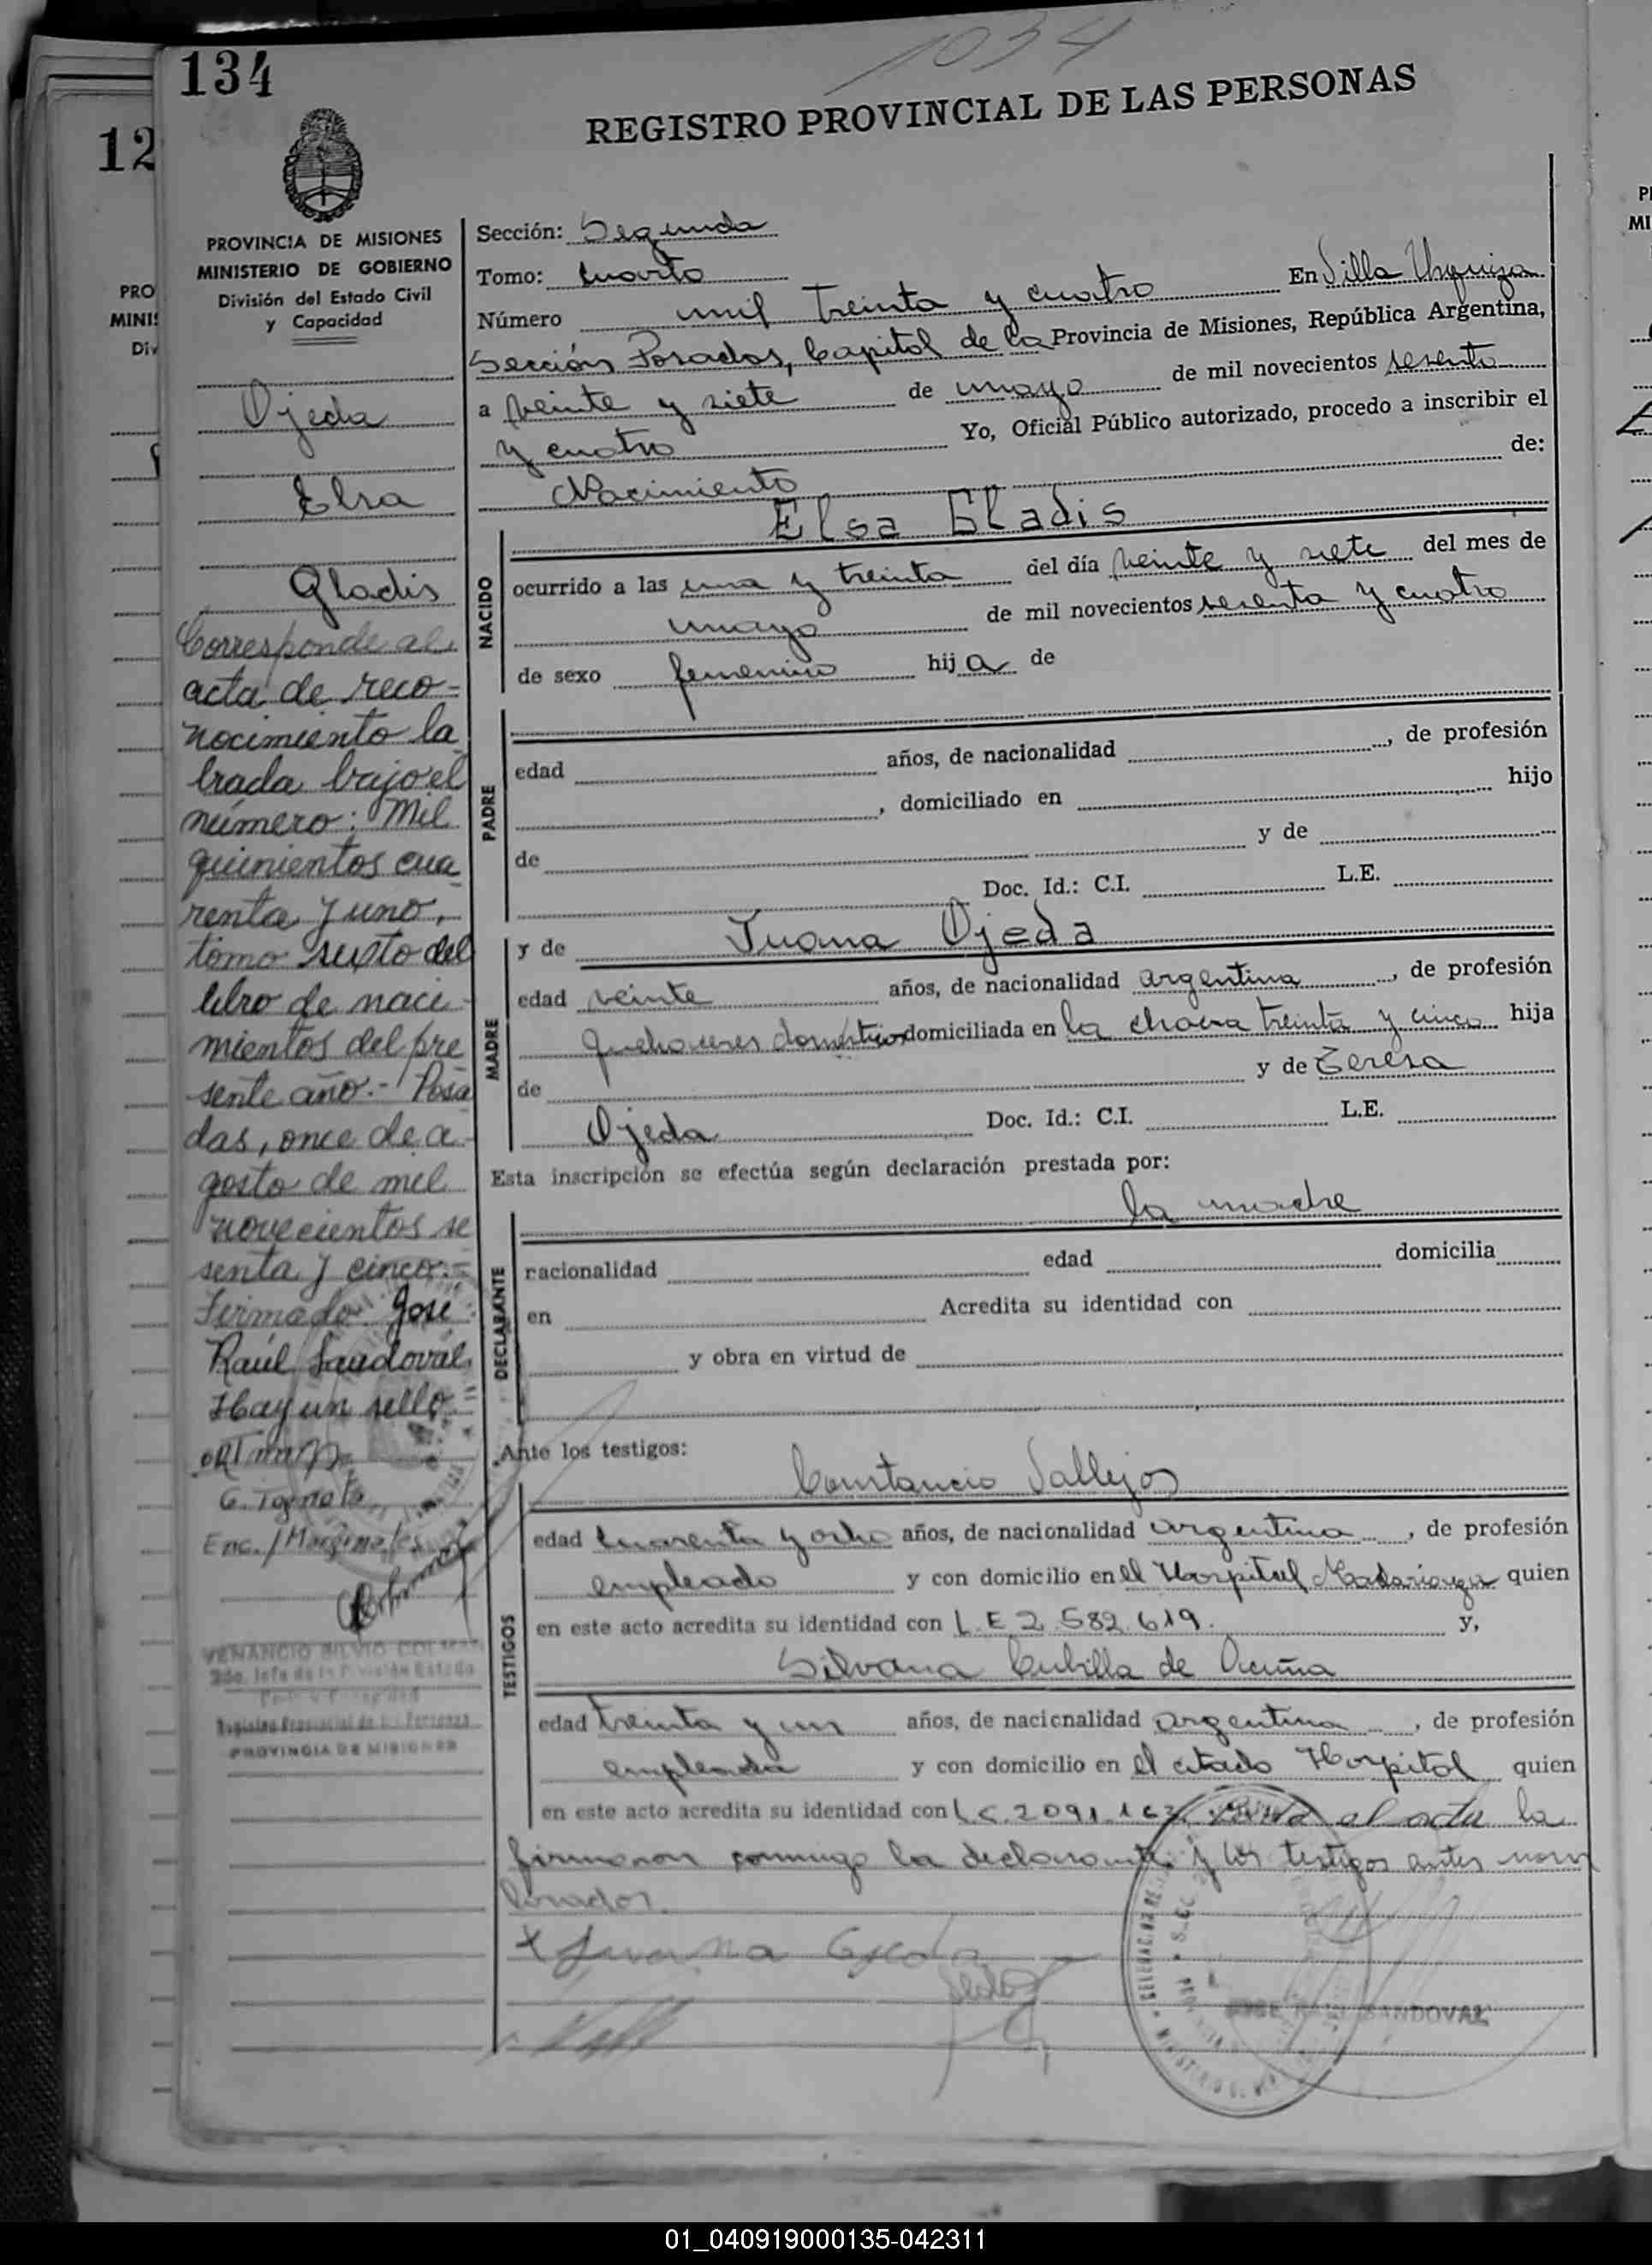 1034
134
REGISTRO PROVINCIAL DE LAS PERSONAS
12
PROVINCIA DE MISIONES
MINISTERIO DE GOBIERNO
División del Estado Civil
y Capacidad
Ojeda
Elsa
Gladis
Corresponde al
acta de reco-
nocimiento la
brada bajo el
número: Mil
quinientos cua
renta y uno,
tomo sexto del
libro de naci-
mientos del pre
sente año.- Posa
das, once de a-
gosto de mil
novecientos se
senta y cinco.-
Firmado: José
Raúl Sandoval.
Hay un sello.=
Enc./Marginales
VENANCIO SILVIO
2do. Jefe de la División Estado
Registro Provincial de las Personas
PROVINCIA DE MISIONES
Sección: Segunda
Tomo: Cuarto
Número mil treinta y cuatro En Villa Urquiza
Sección Posadas, Capital de la Provincia de Misiones, República Argentina,
a veinte y siete de mayo de mil novecientos sesenta
y cuatro Yo, Oficial Público autorizado, procedo a inscribir el
Nacimiento de:
NACIDO
Elsa Gladis
ocurrido a las una y treinta del día veinte y siete del mes de
mayo de mil novecientos sesenta y cuatro
de sexo femenino hija de
PADRE
edad años, de nacionalidad , de profesión
, domiciliado en hijo
de y de
Doc. Id.: C.I. L.E.
MADRE
y de Juana Ojeda
edad veinte años, de nacionalidad argentina , de profesión
quehaceres domésticos domiciliada en la chacra treinta y cinco hija
de y de Teresa
Ojeda Doc. Id.: C.I. L.E.
Esta inscripción se efectúa según declaración prestada por:
la madre
DECLARANTE
racionalidad edad domicilia
en Acredita su identidad con
y obra en virtud de
Ante los testigos:
TESTIGOS
Constancio Vallejos
edad cuarenta y ocho años, de nacionalidad argentina , de profesión
empleado y con domicilio en el Hospital Madariaga quien
en este acto acredita su identidad con L.E. 2.582.619. y,
Silvana Cubilla de Acuña
edad treinta y un años, de nacionalidad argentina , de profesión
empleada y con domicilio en el citado Hospital quien
en este acto acredita su identidad con L.C. 2091 el acta la
firmaron conmigo la declarante y los testigos antes nom
brados.
Juana Ojeda
SANDOVAL
PRO
MINIS
Div
01_040919000135-042311